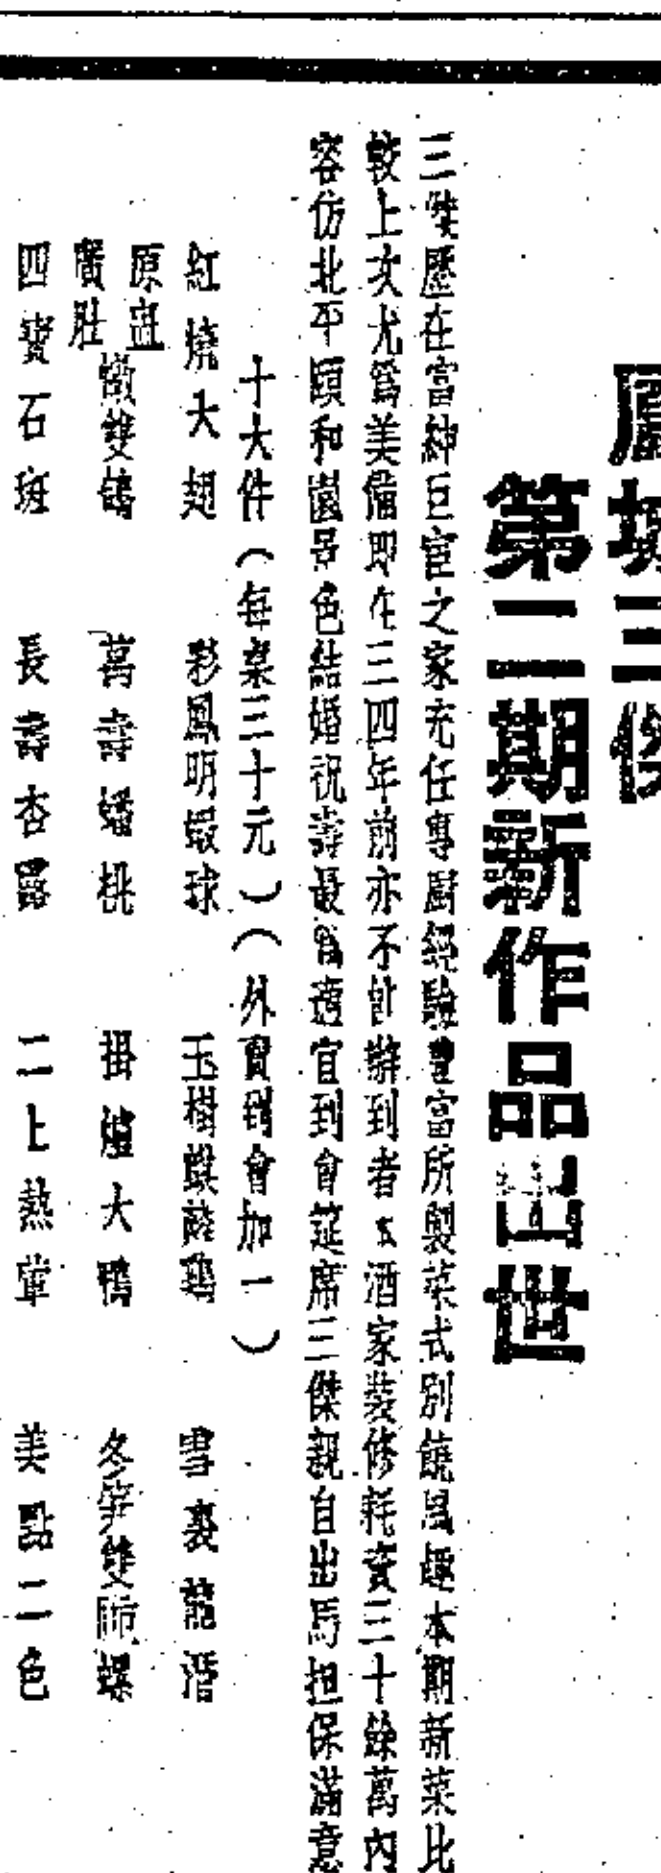 廚壇三傑
第二期新作品出世
三傑歷在富紳巨宦之家充任專廚經驗豐富所製菜式別饒風趣本期新菜比
較上次尤爲美備即在三四年前亦不計辦到者本酒家裝修耗資三十餘萬內
容仿北平頤和園景色結婚祝壽最爲適宜到會筵席三傑親自出馬担保滿意
十大件（每桌三十元）（外賣到會加一）
紅燒大翅 彩鳳明蝦球 玉樹麒麟鷄 雪裹龍潛
原盅廣肚燉雙鴿 萬壽蟠桃 掛爐大鴨 冬笋雙螺
四寶石斑 長壽杏露 二上熱葷 美點二色